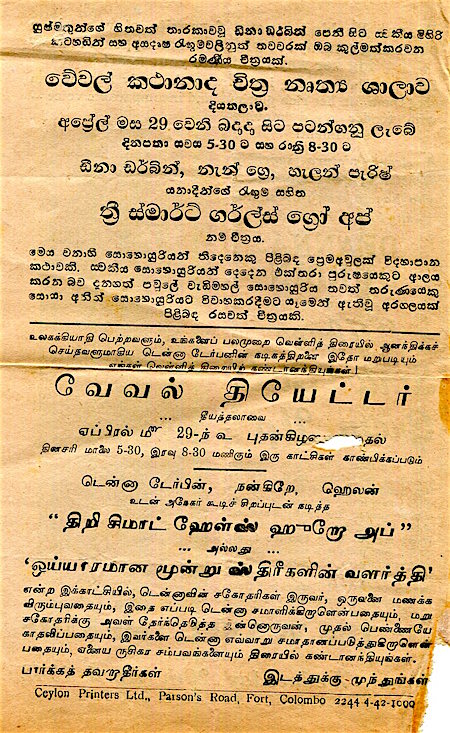 සුප්‍රසිද්ධ හිතවත් තාරකාවවූ ඩීනා ඩර්බින් පෙනී සිට ස්වකීය මිහිරි
කටහඬින් සහ අගදෘෂ රැඟුම්වලිනුත් තවවරක් ඔබ කුල්මත්කරවන
රමණීය චිත්‍රයක්.
වේවල් කථානාද චිත්‍ර නෘත්‍ය ශාලාව
දියතලාව.
අප්‍රේල් මස 29 වෙනි බදාදා සිට පටන්ගනු ලැබේ
දිනපතා සවස 5-30 ට සහ රාත්‍රී 8-30 ට
ඩීනා ඩර්බින්, නැන් ග්‍රේ, හැලන් පැරිෂ්
යනාදීන්ගේ රැඟුම් සහිත
ත්‍රී ස්මාර්ට් ගර්ල්ස් ග්‍රෝ අප්
නම් චිත්‍රය.
මෙය වනාහි සොහොයුරියන් තිදෙනෙකු පිළිබඳ ප්‍රේමඅවුලක් විදහාපාන
කථාවකි. ස්වකීය සොහොයුරියන් දෙදෙන එක්තරා පුරුෂයෙකුට ආලය
කරන බව දනගත් පවුලේ වැඩිමහල් සොහොයුරිය තවත් තරුණයෙකු
සොයා අනිත් සොහොයුරියට විවාහකරදීමට යෑමෙන් ඇතිවූ අරගලයක්
පිළිබඳ රසවත් චිත්‍රයකි.
உலகக்கியாதி பெற்றவளும், உங்களைப் பலமுறை வெள்ளித் திரையில் ஆனந்திக்கச்
செய்தவளுமாகிய டென்னா டேர்பனின் நடிகத்திறனை இதோ மறுபடியும்
எங்கள் வெள்ளித் திரையில் கண்டானந்தியுங்கள்!
வேவல் தியேட்டர்
... தீயத்தலாவை ...
ஏப்பிரல் மீ 29-ந் உ புதன்கிழமை முதல்
தினசரி மாலை 5-30, இரவு 8-30 மணிக்கும் இரு காட்சிகள் காண்பிக்கப்படும்
டென்னா டேர்பின், நன்கிறே, ஹெலன்
உடன் அநேகர் கூடிச் சிறப்புடன் நடித்த
“திறி சிமாட் ஹேள்ஸ் ஹுறோ அப்”
... அல்லது ...
‘ஒய்யாரமான மூன்று ஸ்திரீகளின் வளர்த்தி’
என்ற இக்காட்சியில், டென்னாவின் சகோதரிகள் இருவர், ஒருவனை மணக்க
விரும்புவதையும், இதை எப்படி டென்னா சமாளிக்கிறாளென்பதையும், மறு
சகோதரிக்கு அவள் தேர்ந்தெடுத்த இன்னொருவன், முதல் பெண்ணையே
காதலிப்பதையும், இவர்களை டென்னா எவ்வாறு சமாதானப்படுத்துகிறாளென்
பதையும், ஏனைய ருசிகர சம்பவங்களையும் திரையில் கண்டானந்தியுங்கள்.
பார்க்கத் தவறாதீர்கள் இடத்துக்கு முந்துங்கள்
Ceylon Printers Ltd., Parson's Road, Fort, Colombo 2244 4-42-1000